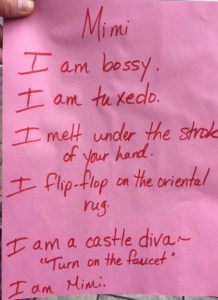 Mimi
I am bossy.
I am tuxedo.
I melt under the stroke
of your hand.
I flip-flop on the oriental
rug.
I am a castle diva~
"Turn on the faucet"
I am Mimi.